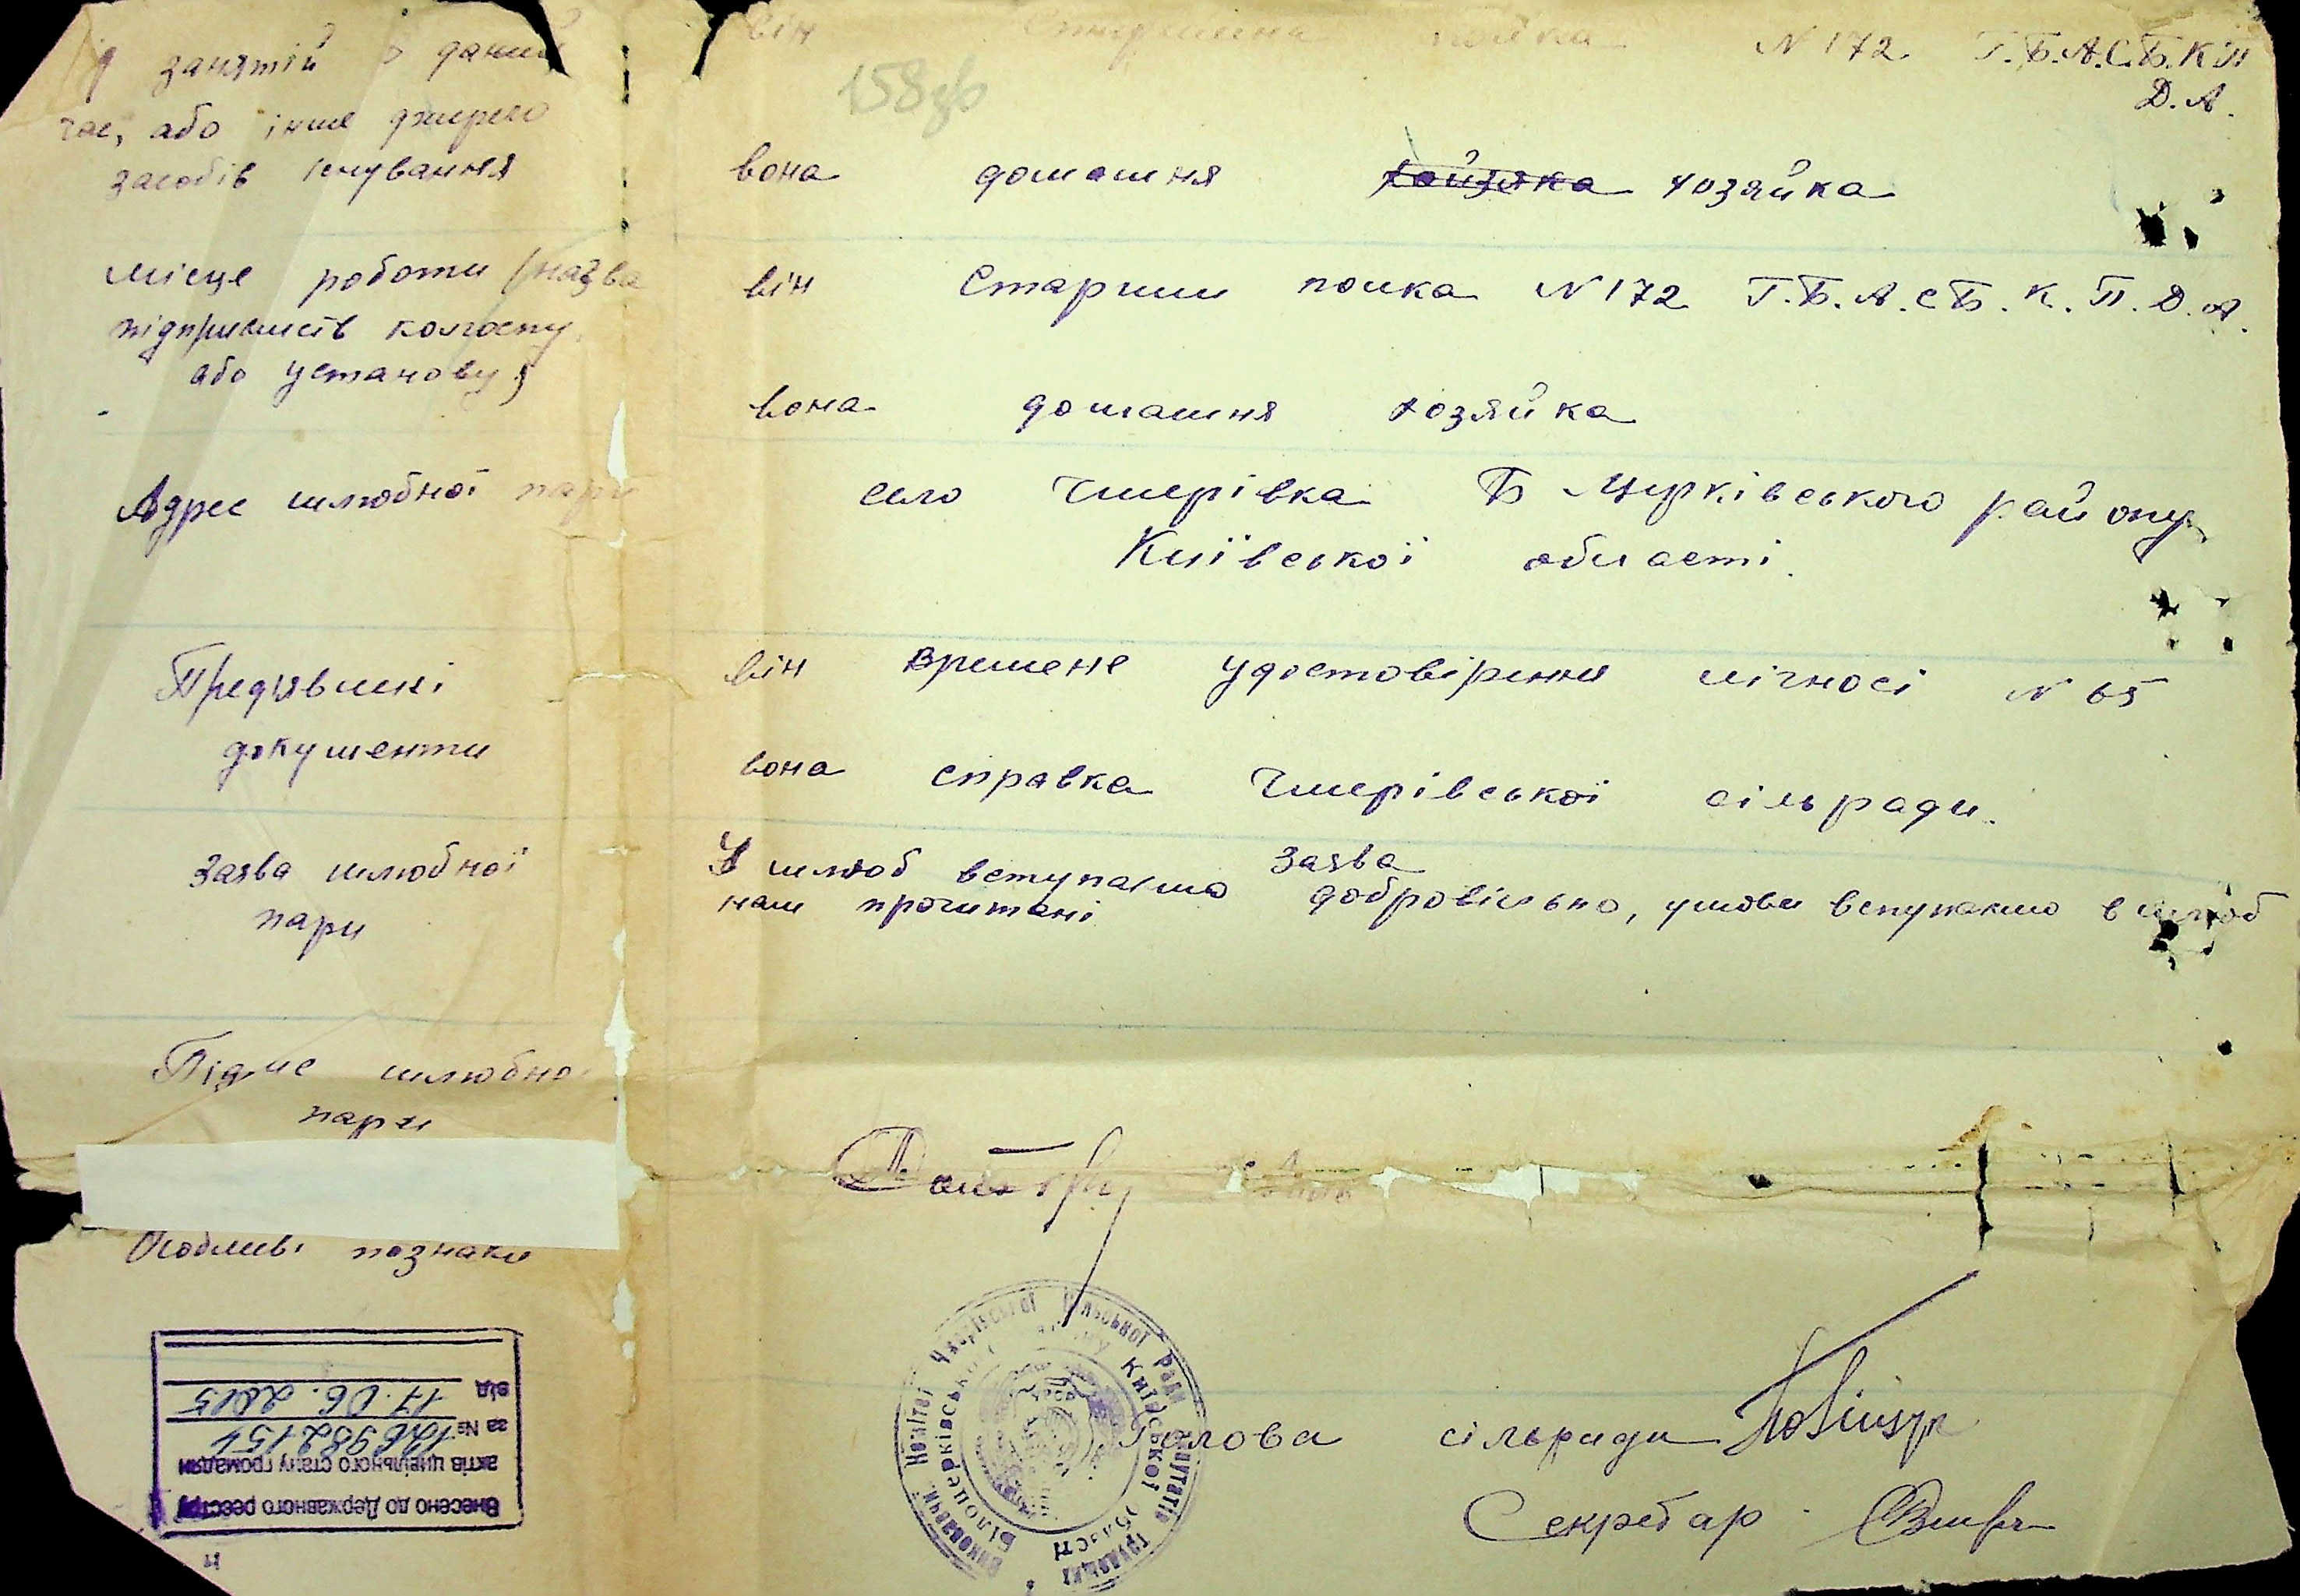 занятій даний
він Старшина полка N 172 Г.Б.А.С.Б.К.П
Д.А.
158зв
час, або інше джерело
засобів існування
вона домашня хайзяка хозяйка
місце роботи (назва
підприємств колгоспу
або установу)
він Старшин полка N 172 Г.Б.А.С.Б.К.П.Д.А.
вона домашня хозяйка
Адрес шлюбної пари
село Чмерівка Б Церківського району
Київської області.
Предявлені
документи
він времене удостовірення лічносі N 65
вона справка Чмерівської сільради.
Заява шлюбної
пари
Заява
У шлюб вступаємо добровільно, умови вступаємо в шлюб
нам прочитані
Підпис шлюбної
пари
Особливі познаки
Голова сільради
Секретар
Виконавчий Комітет Чмерівської Сільської Ради депутатів трудящих
Білоцерківського району Київської області
УРСР
Внесено до Державного реєстру
актів цивільного стану громадян
за №
від 17.06.2015